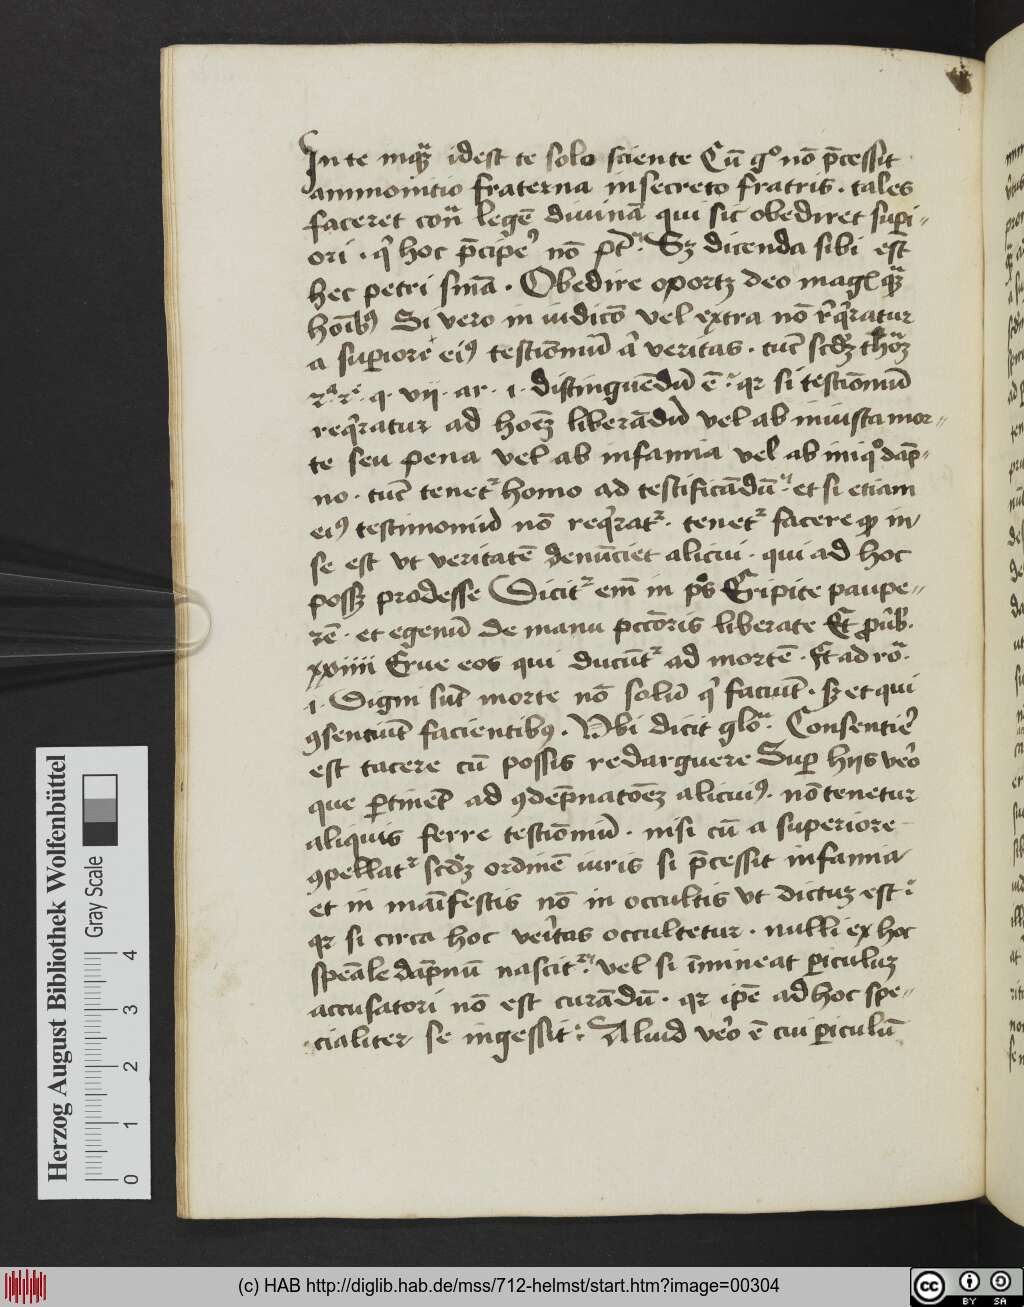 In te inqᷓ idest te solo sciente Cū gͦ nō p̄cessit
ammonitio fraterna in secreto fratris . tales
faceret con̄ legē divinā qui sic obediret sup̱i-
ori . qͥ hoc p̄cip̱e nō pt̄ : Sꝫ dicenda sibi est
hec petri sn̄ia . Obedire oportꝫ deo magꝭ qᷓ
hoībꝰ Si vero in iudicō vel extra nō reqͥratur
a sup̱iore eiꝰ testiōniū a veritas . tūc scd'ꝫ thoᷓ
2ᵃ 2ᵉ . q . vij . ar . 1 . distinguēdū ē : qꝛ si testiōniū
reqͥratur ad hoēꝫ liberādū vel ab iniusta mor-
te seu pena vel ab infamia vel ab iniqͦ dāp-
no . tūc tenetᷣ homo ad testificādū : et si etiam
eiꝰ testimoniū nō reqͥratᷣ . tenetᷣ facere qd in
se est vt veritatē denūciet alicui . qui ad hoc
possꝫ prodesse Dicitᷣ em̄ in ps̄ Eripite paupe-
rē . et egenū de manu pctōris liberate Et ꝓūb .
xxiiii Erue eos qui ducūtᷣ ad mortē . Et ad rō .
1 . Digni sūt morte nō solū qͥ faciūt . sꝫ et qui
ꝯsenciūt facientibꝰ . Vbi dicit glō . Consentire
est tacere cū possis redarguere Sup̱ hijs vͦo
que p̱tinēt ad ꝯdēpnatōēꝫ alicuiꝰ . nō tenetur
aliquis ferre testiōniū . nisi cū a superiore
ꝯpellatᷣ scd'ꝫ ordinē iuris si p̄cessit infamia
et in māifestis nō in occultis vt dictuꝫ est :
qꝛ si circa hoc veritas occultetur . nulli ex hoc
speāle dāpnū nascitᷣ : vel si īmineat p̱iculuꝫ
accusatori nō est curādū . qꝛ ip̄e ad hoc spe-
cialiter se ingessit : Aliud vͦo ē cui p̱iculū
Herzog August Bibliothek Wolfenbüttel
Gray Scale
0 1 2 3 4
(c) HAB http://diglib.hab.de/mss/712-helmst/start.htm?image=00304
cc BY SA